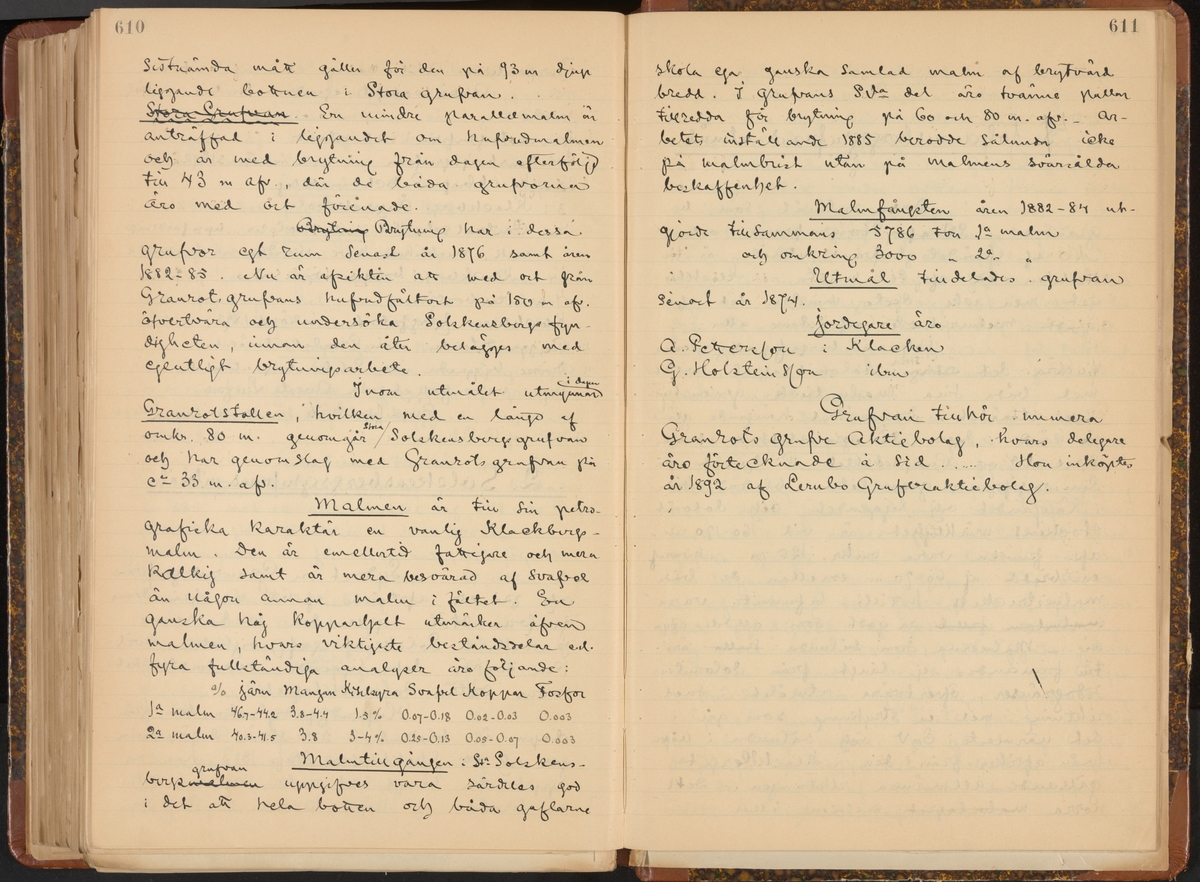 610
Sistnämda mått gäller för den på 93 m djup
liggande bottnen i Stora grufvan.
Stora Grufvan En mindre parallelmalm är
anträffad i liggandet om hufvudmalmen
och är med brytning från dagen efterföljd
till 43 m afv., där de båda grufvorna
äro med ort förenade.
Brytning Brytning har i dessa
grufvor egt rum senast år 1876 samt åren
1882-85. Nu är afsikten att med ort från
Granrotsgrufvans hufvudfältort på 180 m afv.
öfvertvära och undersöka Solskensbergs fyn-
digheten, innan den åter belägges med
egentligt brytningsarbete.
i dagen
Inom utmålet utmynnar
Granrotstollen, hvilken med en längd af
omkr. 80 m. genomgår Stora Solskensbergsgrufvan
och har genomslag med Granrotsgrufvan på
ca 33 m. afv.
Malmen är till sin petro-
grafiska karaktär en vanlig Klackbergs-
malm. Den är emellertid fattigare och mera
kalkig samt är mera besvärad af svafvel
än någon annan malm i fältet. En
ganska hög kopparhalt utmärker äfven
malmen, hvars viktigaste beståndsdelar enl.
fyra fullständiga analyser äro följande:
% järn Mangan Kiselsyra Svafvel Koppar Fosfor
1a malm 46.7-44.2 3.8-4.4 1.5% 0.07-0.18 0.02-0.03 0.003
2a malm 40.3-41.5 3.8 3-4% 0.25-0.13 0.05-0.07 0.003
Malmtillgången i Sta Solskens-
grufvan
bergsmalmen uppgifves vara särdeles god
i det att hela botten och båda gaflarne
611
skola ega ganska samlad malm af brytvärd
bredd. I grufvans SVa del äro tvänne pallar
tillredda för brytning på 60 och 80 m. afv. Ar-
betets inställande 1885 berodde sålunda icke
på malmbrist utan på malmens svårsålda
beskaffenhet.
Malmfångsten åren 1882-84 ut-
gjorde tillsammans 5786 ton 1a malm
och omkring 3000 " 2a "
Utmål tilldelades grufvan
senast år 1874.
Jordegare äro
A. Pettersson i Klacken
G. Holstensson ibm
Grufvan tillhör numera
Granrots grufve Aktiebolag, hvars delegare
äro förtecknade å sid ..... Hon inköptes
år 1892 af Lernbo Grufveaktiebolag.